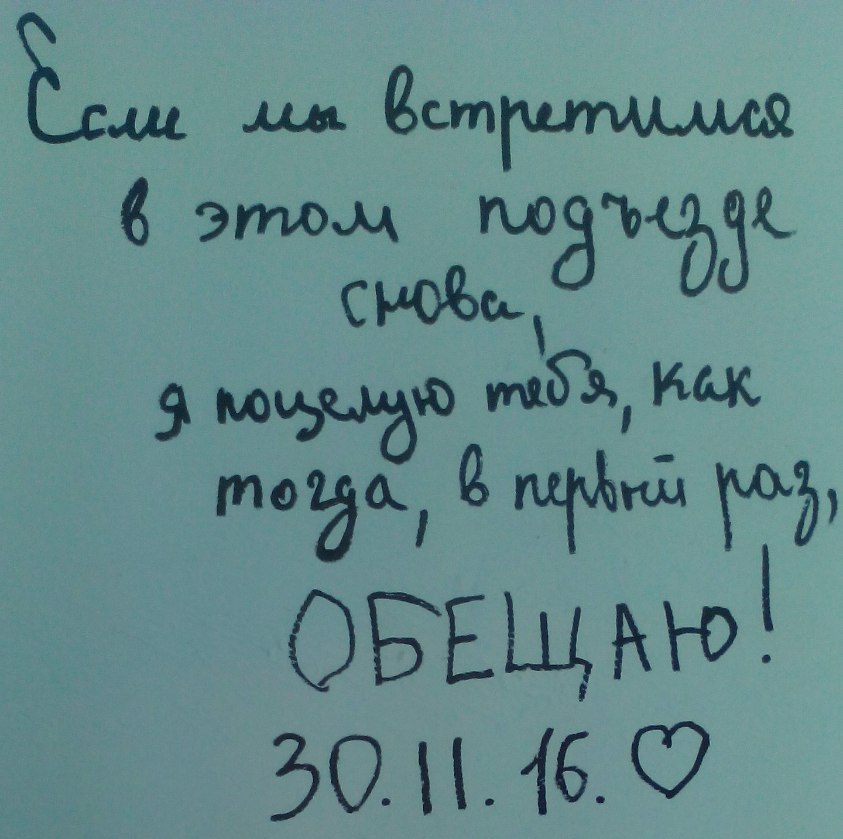 Если мы встретимся
в этом подъезде
снова,
я поцелую тебя, как
тогда, в первый раз,
ОБЕЩАЮ!
30.11.16.♡